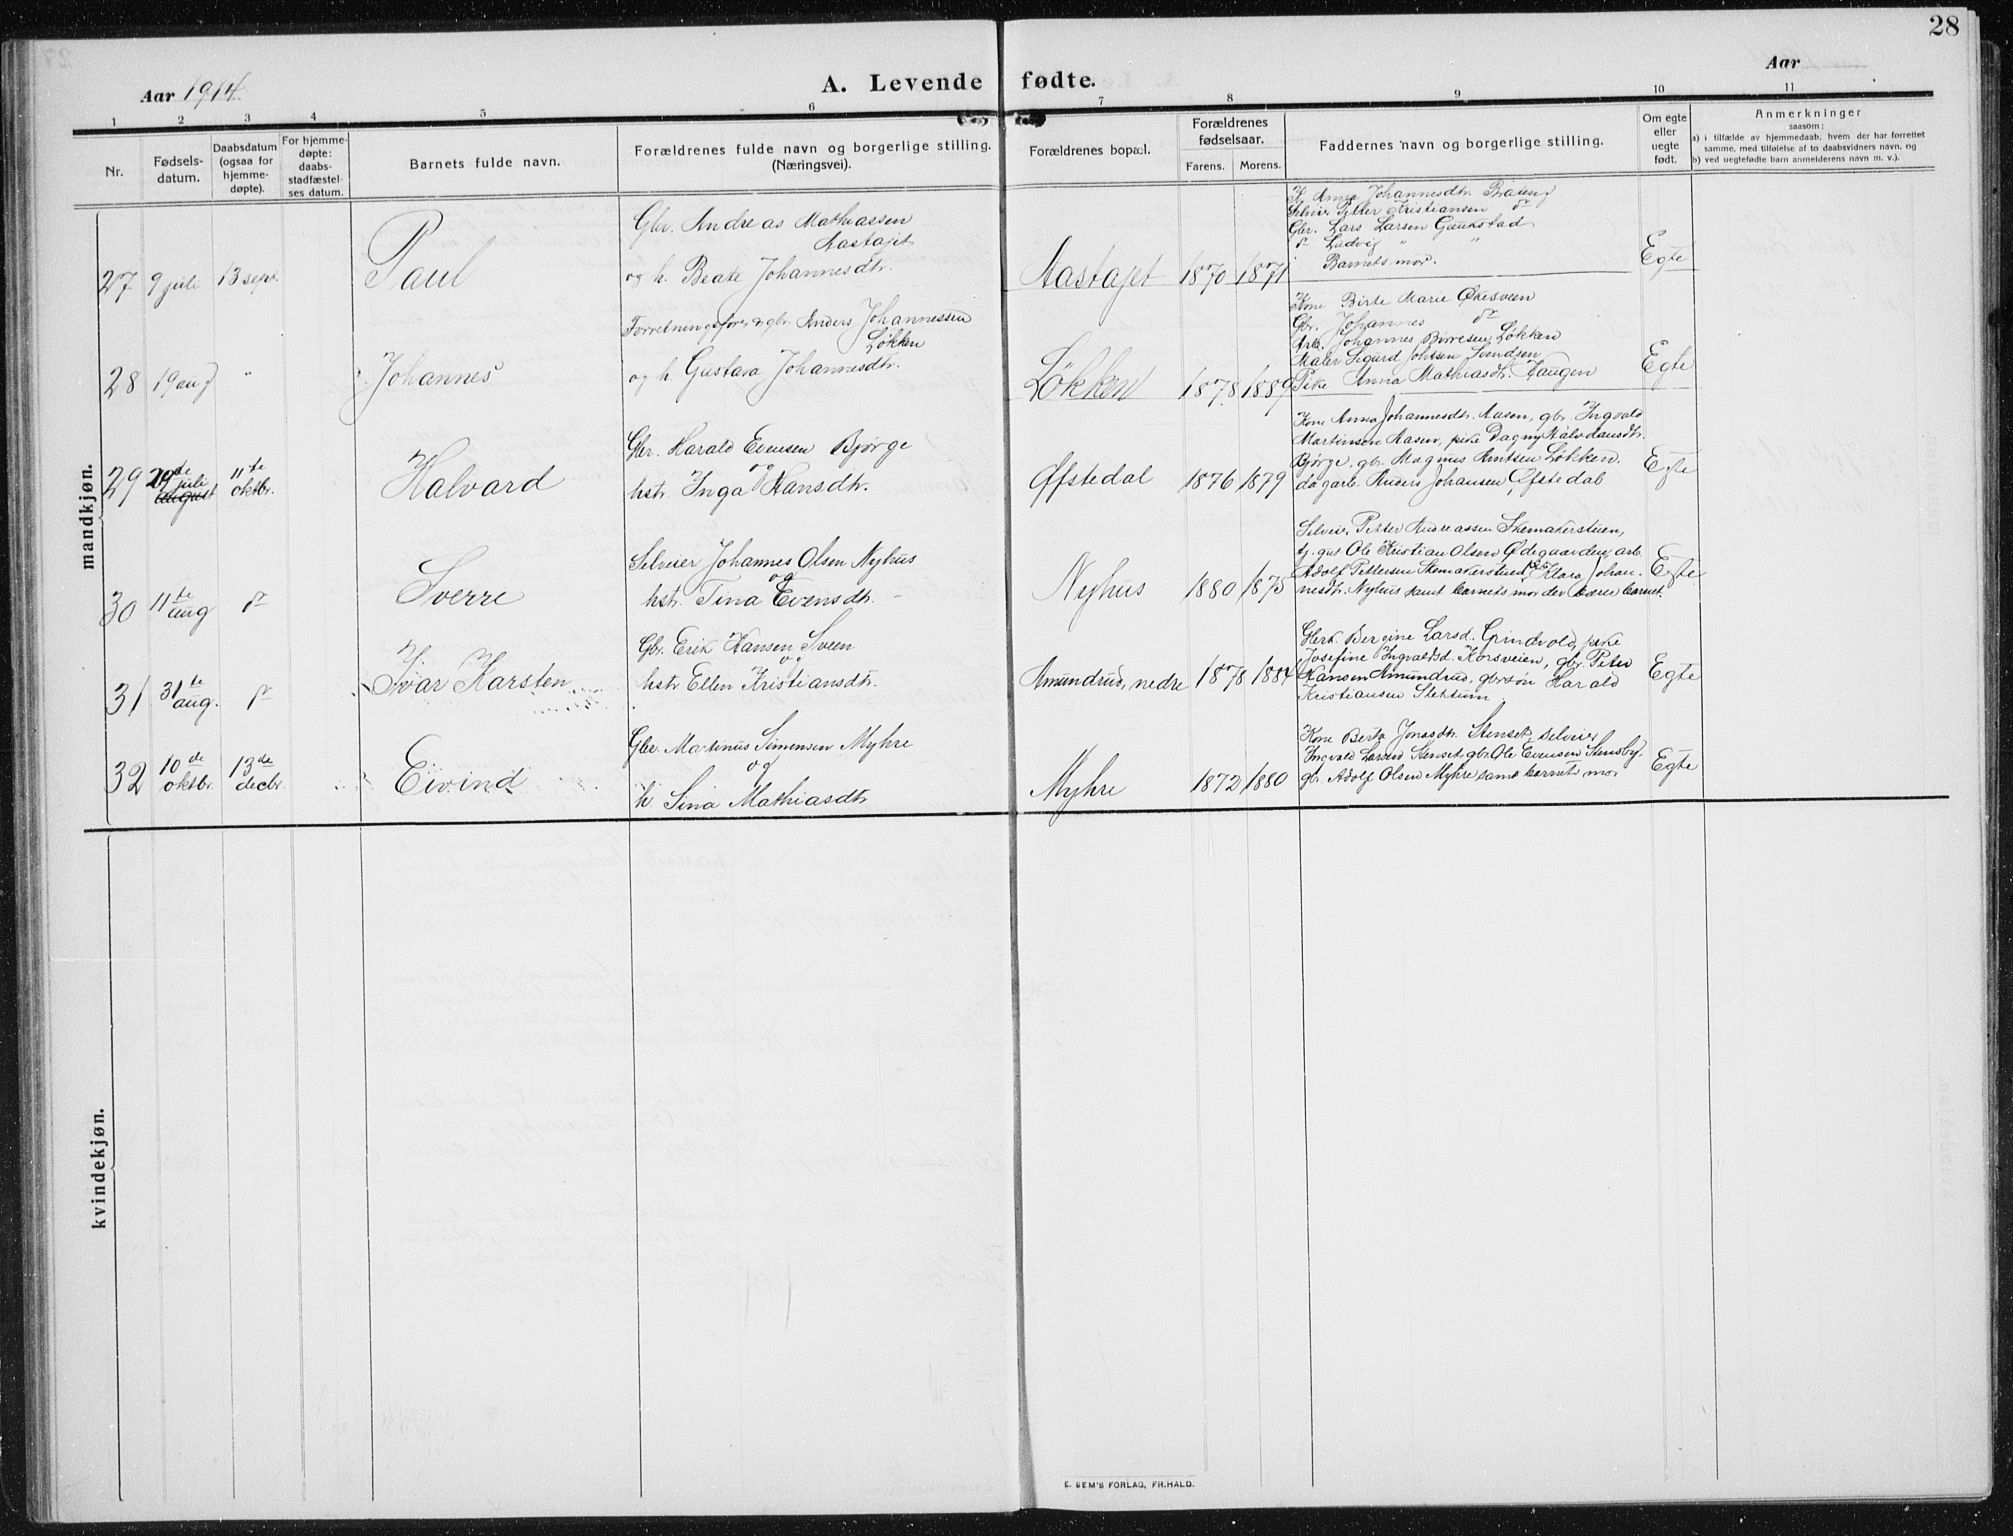 28
Aar 1914.
A. Levende fødte.
Aar
1 2 3 4 5 6 7 8 9 10 11
Nr.
Fødsels-
datum.
Daabsdatum
(ogsaa for
hjemme-
døpte).
For hjemme-
døpte:
daabs-
stadfæstel-
ses datum.
Barnets fulde navn.
Forældrenes fulde navn og borgerlige stilling.
(Næringsvei).
Forældrenes bopæl.
Forældrenes
fødselsaar.
Farens. Morens.
Faddernes navn og borgerlige stilling.
Om egte
eller
uegte
født.
Anmerkninger
saasom:
a) i tilfælde av hjemmedaab, hvem der har forrettet
samme, med tilføielse af to daabsvidners navn, og
b) ved uegtefødte barn anmelderens navn m. v.).
mandkjøn.
27 9 juli 13 sep. Paul
Gbr. Andreas Mathiassen
Aastajet
og h. Beate Johannesdtr.
Aastajet 1870 1871
Anna Johannesdtr.
Selveier Petter Kristiansen do
Gbr. Lars Larsen Gaukstad
do Ludvig " "
Barnets mor.
Egte
28 19 aug " Johannes
Forretningsfører & gbr. Anders Johannessen
Løkken
og h. Gustava Johannesdtr.
Løkken 1878 1889
Kone Birte Marie Økesveen
Gbr. Johannes do
Arb. Johannes Børresen Løkken
Maler Sigurd Johsen Svendsen
Pike Anna Mathiasdtr. Haugen
Egte
29 29de juli august 11te oktbr. Halvard
Gbr. Harald Evensen Bjørge
og
hstr. Inga Hansdtr.
Øfstedal 1876 1879
Kone Anna Johannesdtr. Aasen, gbr. Ingvald
Martinsen Aasen, pike Dagny Halvdansdtr.
Bjørge, gbr. Magnus Arntsen Løkken.
dagarb. Anders Johansen Øfstedal
Egte
30 11te aug do Sverre
Selveier Johannes Olsen Nyhus
og
hstr. Tina Evensdtr.
Nyhus 1880 1875
Selveier Petter Andreassen Skomakerstuen,
tj. gut Ole Kristian Olsen Ødegaarden, arb.
Adolf Pettersen Skomakerstuen, pike Klara Johan-
nesdtr. Nyhus samt barnets mor der bærer barnet.
Egte
31 31te aug. do Ivar Karsten
Gbr. Erik Hansen Sveen
og
hstr Ellen Kristiansdtr.
Amundrud, nedre 1878 1884
Bergine Larsd. Grindvold, pike
Josefine Ingvaldsd. Korsveien, gbr. Peter
Hansen Amundrud, gbrsøn Harald
Kristiansen Stensum
Egte
32 10de oktbr. 13de decbr. Eivind
Gbr. Martinus Simensen Myhre
og
h Sina Mathiasdtr
Myhre 1872 1880
Kone Berta Jonasdtr. Stenset, selveier
Ingvald Larsen Stenset, gbr. Ole Evensen Stensby,
gbr. Adolf Olsen Myhre samt barnets mor
Egte
kvindekjøn.
E. SEM'S FORLAG, FR.HALD.